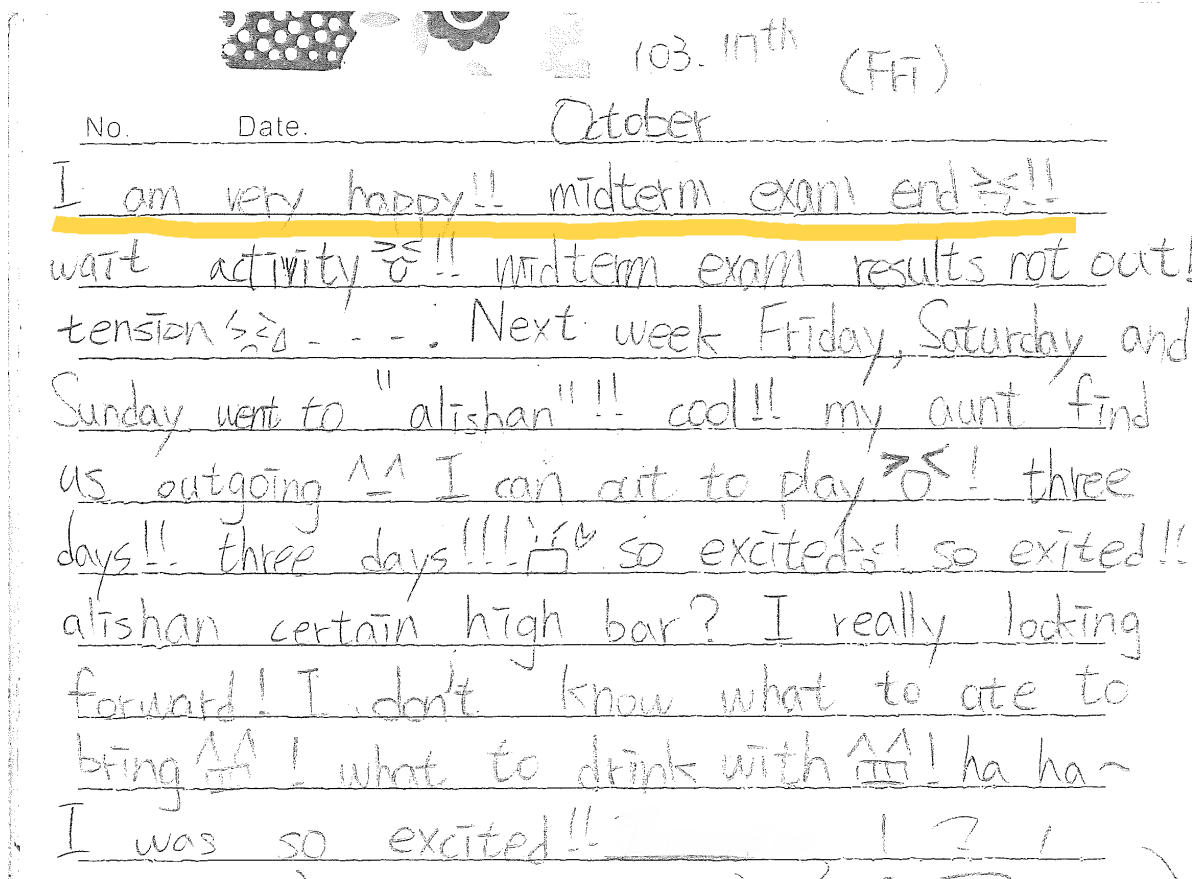 103. 17th (Fri)
No. Date. October
I am very happy!! midterm exam end ><!!
wait activity >o<!! midterm exam results not out!
tension >< - - - . Next week Friday, Saturday and
Sunday went to "alishan"!! cool!! my aunt find
us outgoing ^_^ I can out to play >o<! three
days!! three days!!! so excited ><! so exited!!
alishan certain high bar? I really locking
forward! I don't know what to ate to
bring ^^! what to drink with ^^! ha ha~
I was so excited!! ! ? !